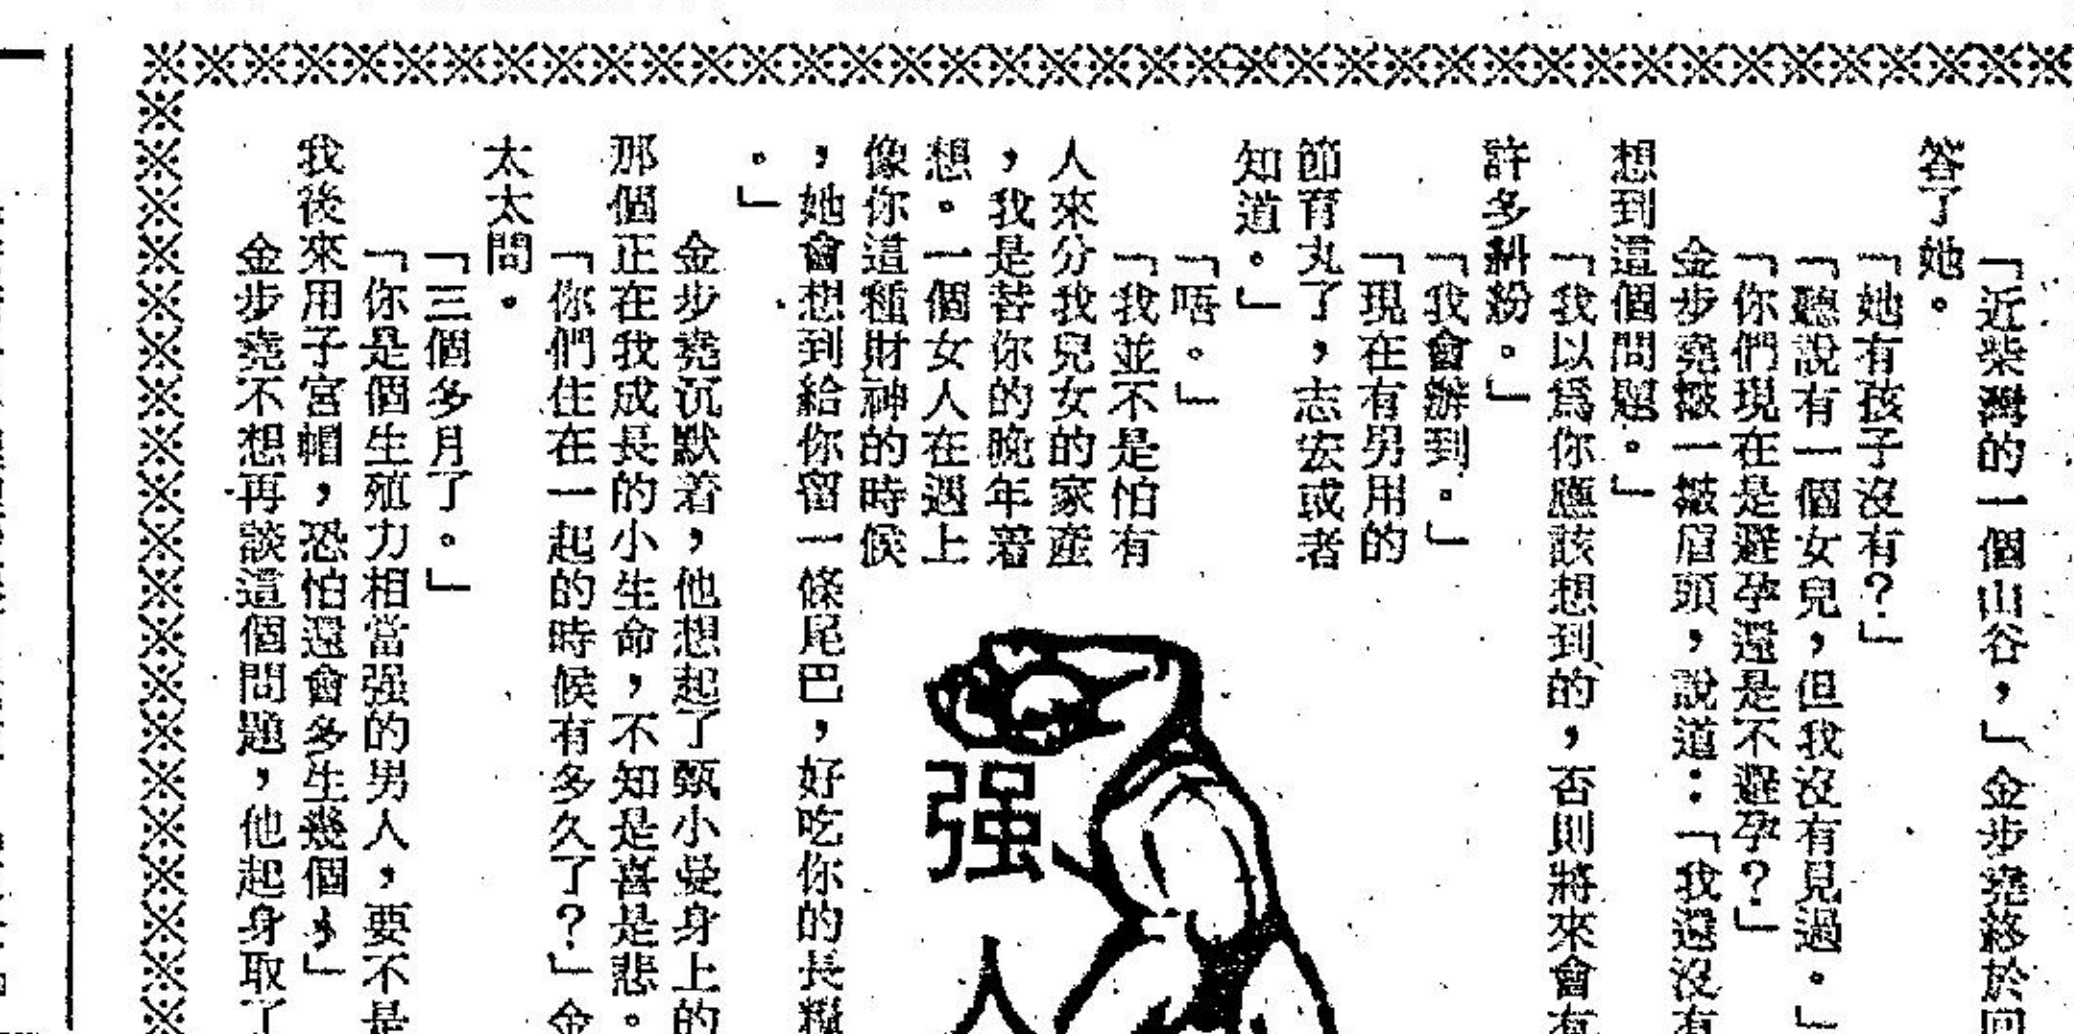 「近柴灣的一個山谷，」金步堯終於回
答了她。
「她有孩子沒有？」
「聽說有一個女兒，但我沒有見過。」
「你們現在是避孕還是不避孕？」
金步堯皺一皺眉頭，說道：「我還沒有
想到這個問題。」
「我以爲你應該想到的，否則將來會有
許多糾紛。」
「我會辦到。」
「現在有男用的
節育丸了，志宏或者
知道。」
「唔。」
「我並不是怕有
人來分我兒女的家產
，我是替你的晚年着
想。一個女人在遇上
像你這種財神的時候
，她會想到給你留一條尾巴，好吃你的長糧
。」
金步堯沉默着，他想起了甄小曼身上的
那個正在我成長的小生命，不知是喜是悲。
「你們住在一起的時候有多久了？」金
太太問。
「三個多月了。」
「你是個生殖力相當强的男人，要不是
我後來用子宮帽，恐怕還會多生幾個，」
金步堯不想再談這個問題，他起身取了
强
人